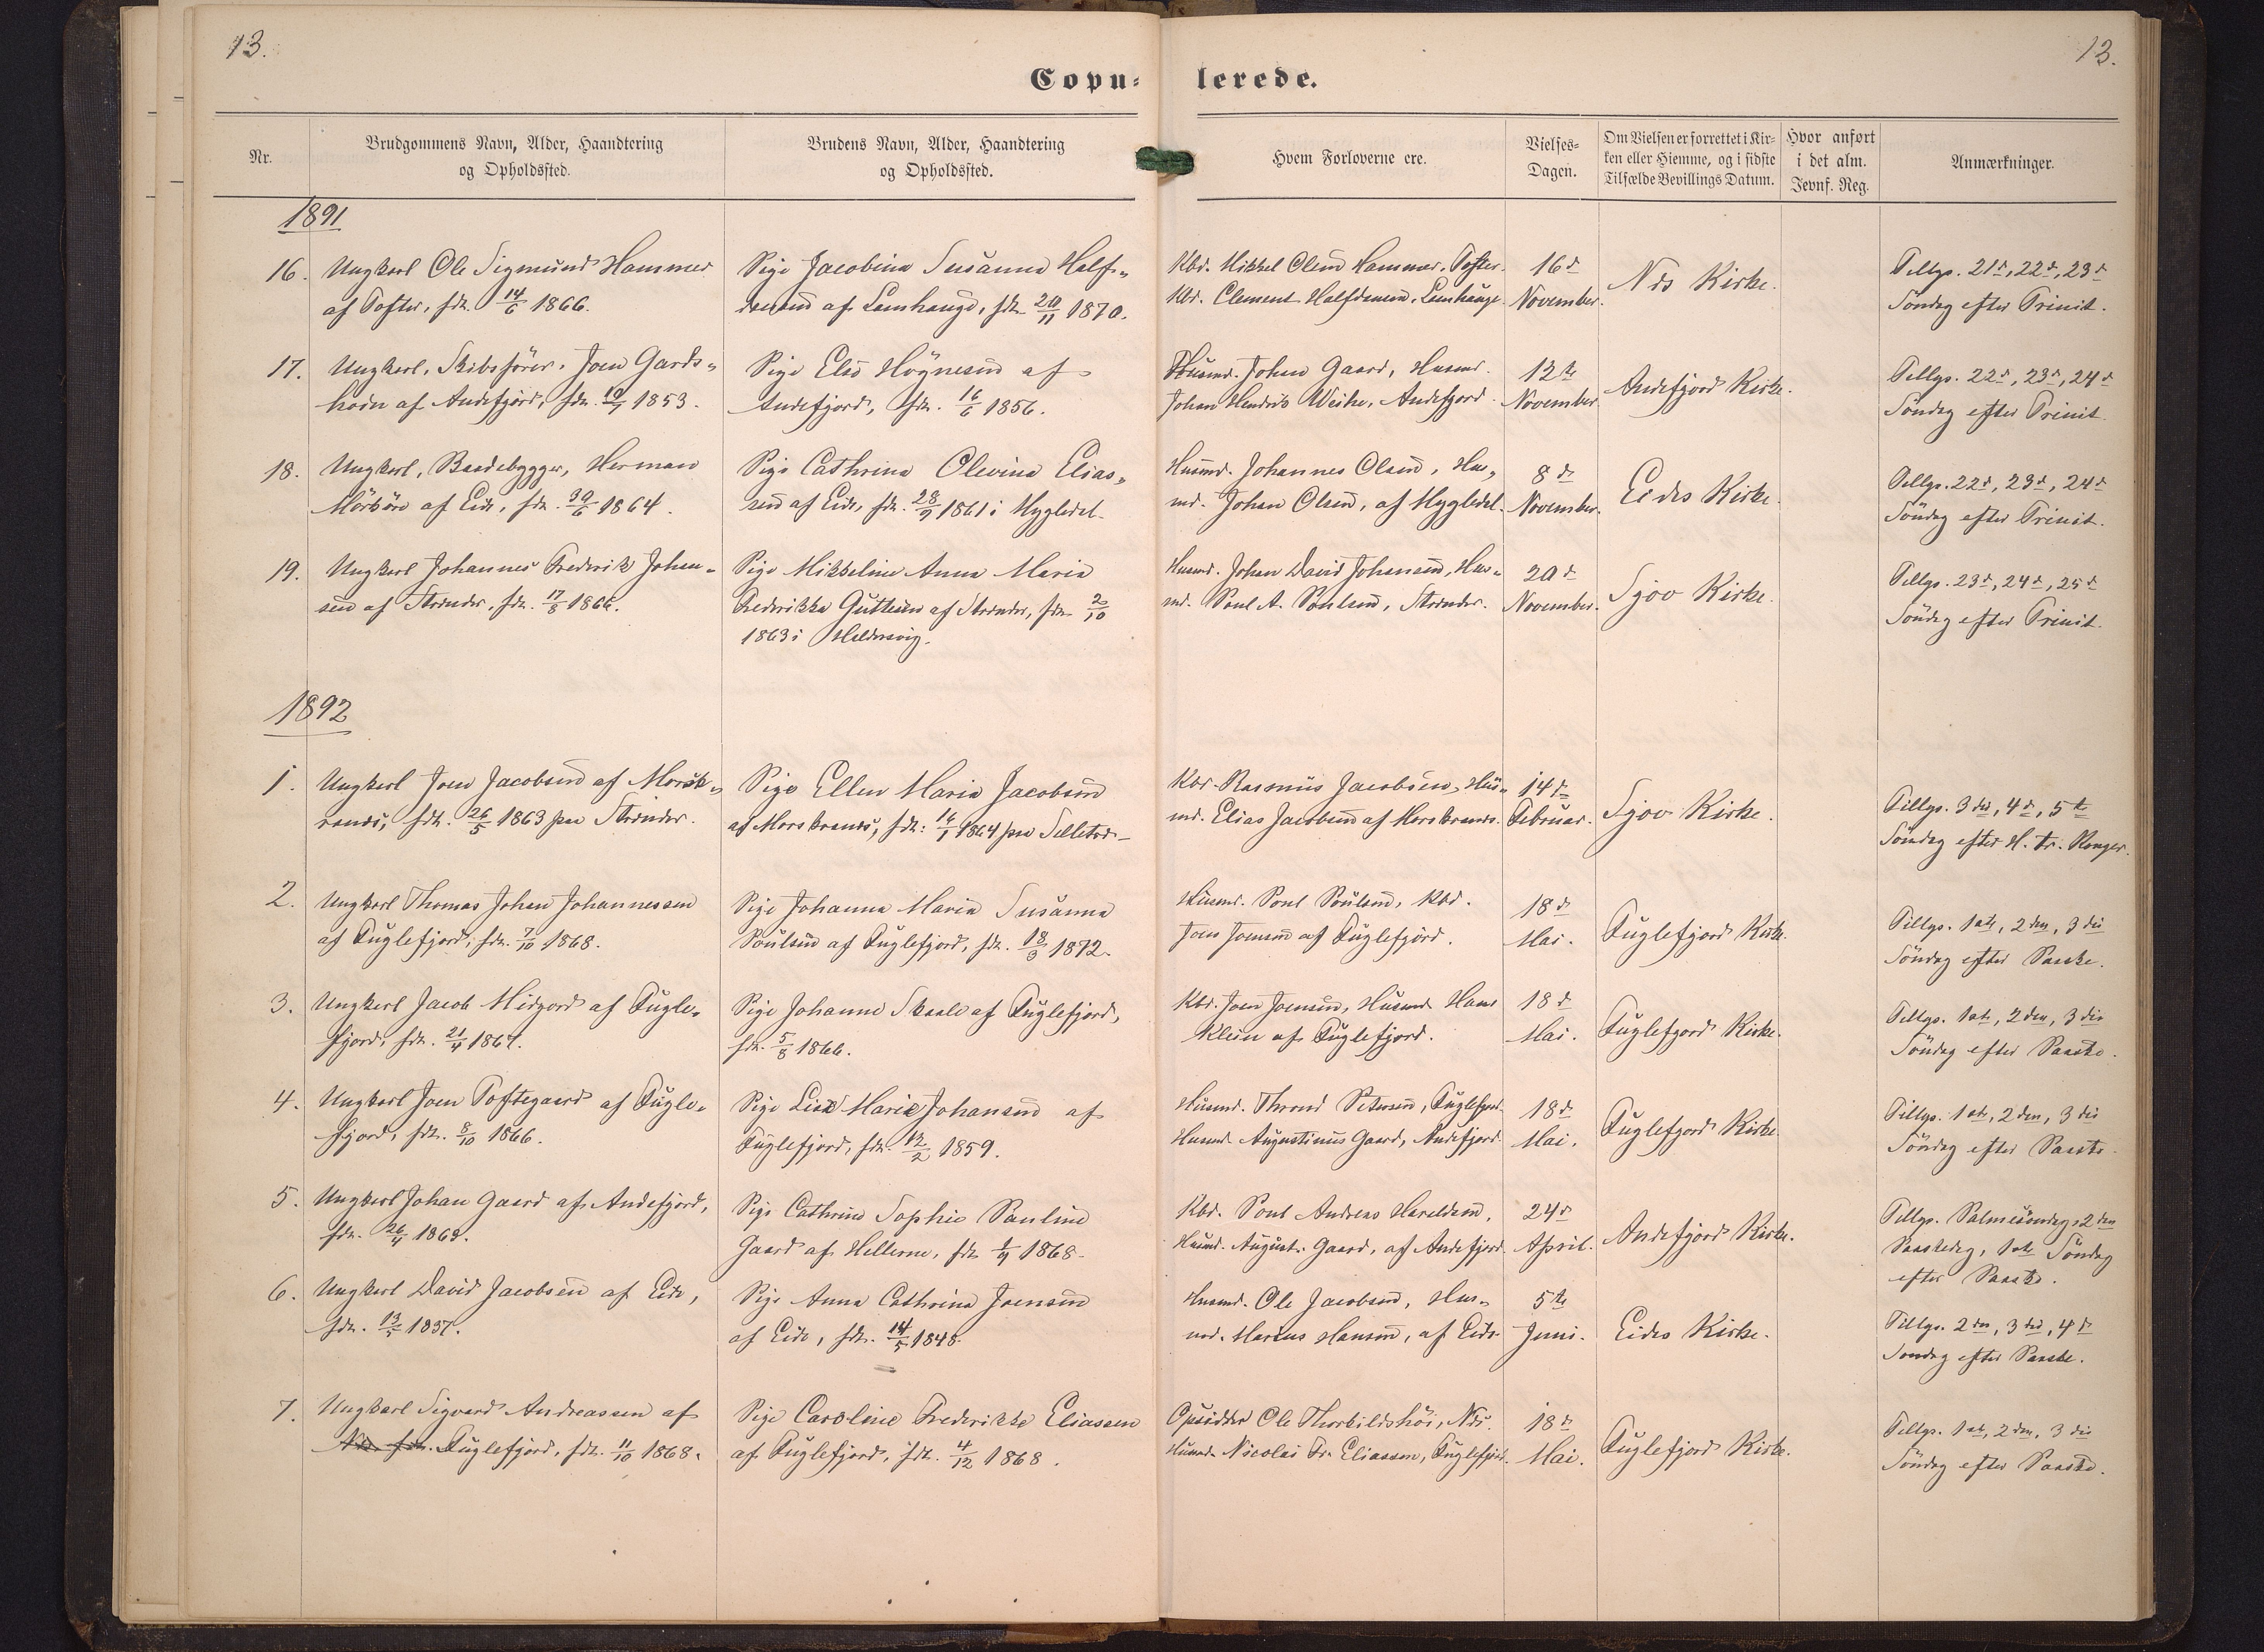 13.
13.
Copu-
lerede.
Nr.
Brudgommens Navn, Alder, Haandtering
og Opholdssted.
Brudens Navn, Alder, Haandtering
og Opholdssted.
Hvem Forloverne ere.
Vielses-
Dagen.
Om Vielsen er forrettet i Kir-
ken eller Hiemme, og i sidste
Tilfælde Bevillings Datum.
Hvor anført
i det alm.
Jevnf. Reg.
Anmærkninger.
1891
16. Ungkarl Ole Sigmund Hammer
af Tofter, fdt. 14/6 1866.
Pige Jacobina Susanna Half-
af Lamhauge, fdt. 20/11 1870.
Kbd. Mikkel Olsen Hammer, Tofter.
Kbd. Clement Halfdansen, Lamhauge
16d
November.
Nes Kirke.
Tillys. 21d, 22d, 23d
Söndag efter Trinit.
17. Ungkarl, Skibsförer, Joen Gards-
horn af Andefjord, fdt. 1853.
Pige Else Högnesen af
Andefjord, fdt. 16/6 1856.
Husmd. Johan Gaard, Husmd.
Johan Hendrik Weihe, Andefjord.
12te
November.
Andefjord Kirke.
Tillys. 22d, 23d, 24d
Söndag efter Trinit.
18. Ungkarl, Baadebygger, Herman
Mörköre af Eide, fdt. 30/6 1864.
Pige Cathrina Olevina Elias-
sen af Eide, fdt. 28/9 1861 i Mygledal.
Husmd. Johannes Olsen, Hus-
md. Johan Olsen, af Mygledal.
8d
November.
Eides Kirke.
Tillys. 22d, 23d, 24d
Söndag efter Trinit.
19. Ungkarl Johannes Frederik Johan-
sen af Strender, fdt. 17/8 1866.
Pige Mikkeline Anna Maria
Frederikka Guttesen af Strender, fdt. 2/10
1863 i Haldersvig.
Husmd. Johan David Johansen, Hus-
md. Poul A. Poulsen, Strender.
20d
November.
Sjov Kirke.
Tillys. 23d, 24d, 25d
Söndag efter Trinit.
1892
1. Ungkarl Joen Jacobsen af Morsk-
ranes, fdt. 26/5 1863 paa Strender.
Pige Ellen Maria Jacobsen
af Morskranes, fdt: 16/1 1864 paa Selletræ-
Kbd. Rasmus Jacobsen, Hus-
md. Elias Jacobsen af Morskranes.
14de
Februar.
Sjov Kirke.
Tillys. 3die, 4d, 5te
Söndag efter H. tr. Konger.
2. Ungkarl Thomas Johan Johannesen
af Fuglefjord, fdt. 7/10 1868.
Pige Johanna Maria Susanna
Poulsen af Fuglefjord, fdt. 18/3 1872.
Husmd. Poul Poulsen, Kbd.
Joen Joensen af Fuglefjord.
18d
Mai.
Fuglefjord Kirke.
Tillys. 1ste, 2den, 3die
Söndag efter Paaske.
3. Ungkarl Jacob Midgord af Fugle-
fjord, fdt. 21/4 1867.
Pige Johanne Skaale af Fuglefjord,
fdt. 5/8 1866.
Kbd. Joen Joensen, Husmd. Hans
Klein af Fuglefjord.
18d
Mai.
Fuglefjord Kirke.
Tillys. 1ste, 2den, 3die
Söndag efter Paaske.
4. Ungkarl Joen Toftegaard af Fugle-
fjord, fdt. 8/10 1866.
Pige Lisa Marie Johansen af
Fuglefjord, fdt. 12/2 1859.
Husmd. Thrond Petersen, Fuglefjord.
Husmd. Augustinus Gaard, Andefjord.
18d
Mai.
Fuglefjord Kirke.
Tillys. 1ste, 2den, 3die
Söndag efter Paaske.
5. Ungkarl Johan Gaard af Andefjord,
fdt. 26/4
Pige Cathrine Sophie Pauline
Gaard af Hellerne, fdt. 1868.
Kbd. Poul Andreas Haraldsen,
Husmd. August. Gaard, af Andefjord.
24d
April.
Andefjord Kirke.
Tillys. Palmesöndag, 2den
Paaskedag, 1ste Söndag
efter Paaske.
6. Ungkarl David Jacobsen af Eide,
fdt. 13/5 1857.
Pige Anna Cathrina Joensen
af Eide, fdt. 14/5 1848.
Husmd. Ole Jacobsen, Hus-
md. Marius Hansen, af Eide
5te
Juni.
Eides Kirke.
Tillys. 2den, 3die, 4d
Söndag efter Paaske.
7. Ungkarl Sigvard Andreassen af
Nes fdt. Fuglefjord, fdt. 11/10 1868.
Pige Caroline Frederikke Eliassen
af Fuglefjord, fdt. 4/12 1868.
Opsidder Ole Thorkildshöi, Nes.
Husmd. Nicolai Fr. Eliassen, Fuglefjord.
18d
Mai.
Fuglefjord Kirke.
Tillys. 1ste, 2den, 3die
Söndag efter Paaske.